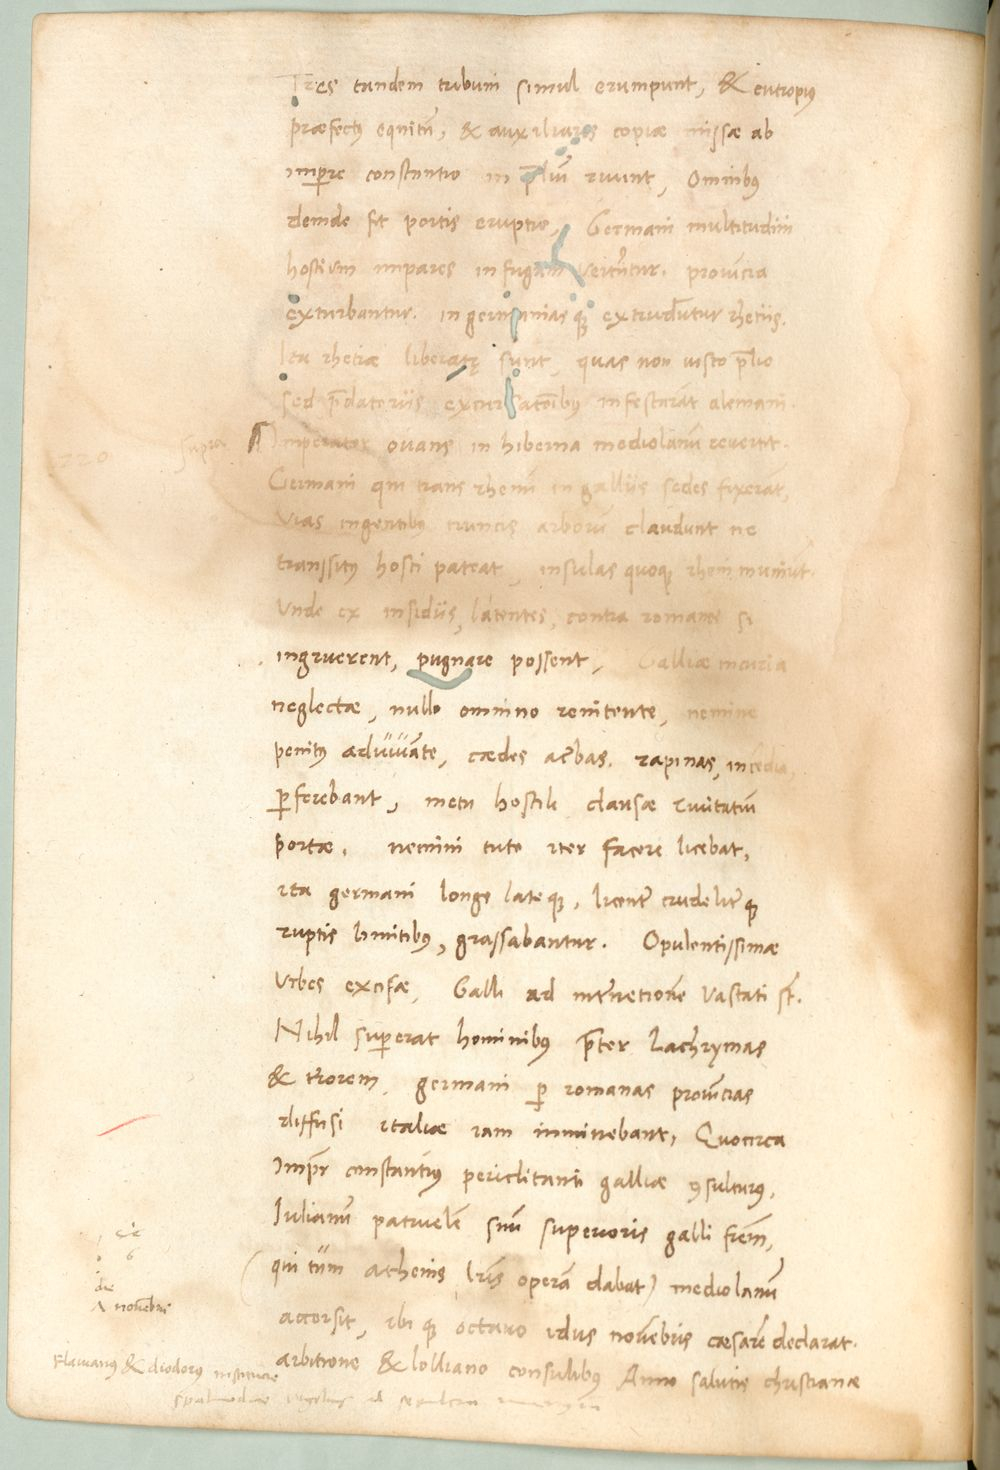 Tres tandem tribuni simul erumpunt, & eutropius
præfectꝰ equitū, & auxiliares copiæ missæ ab
imꝑre constantio in p̄liū ruunt, Omnibꝰ
deinde fit portis eruptio, Germani multitudini
hostium impares in fugam vertūtur. prouīcia
exturbantur. in germanias qꝫ extrudūtur rhetiis.
Ita rhetiæ liberatę sunt, quas non iusto p̄lio
sed p̄datoriis excursatiōibus infestarāt alemani.
supra
Imperator ouans in hiberna mediolanū reuertit.
Germani qui trans rhenū in galliis sedes fixerāt,
Vias ingentibꝰ truncis arborū claudunt ne
transsitꝰ hosti pateat, insulas quoqꝫ rheni muniūt.
Vnde ex insidiis, latentes, contra romanos si
ingruerent, pugnare possent, Galliæ incuria
neglectæ, nullo omnino renitente, nemine
penitꝰ adiuuāte, cædes acͬbas. rapinas, incēdia,
ꝑferebant, metu hostili clausæ ciuitatiū
portæ. nemini tuto iter facere licebat,
ita germani longe lateqꝫ, licenť crudeliťqꝫ
ruptis limitibꝰ, grassabantur. Opulentissimæ
Vrbes excisæ, Galli ad intͬnetionē vastati sͭ.
Nihil suꝑerat hominibꝰ p̄ter lachrymas
& tͬrorem, germani ꝑ romanas prouīcias
diffusi italiæ iam imminebant, Quocirca
Imꝑr constantiꝰ periclitanti galliæ ꝯsulturꝰ,
Iulianū patruelē suū superioris galli frēm,
(qui tūm athenis lr̄is operā dabat) mediolanū
accorsit, ibi qꝫ octauo idus nouēbris cæsarē declarat.
arbitione & lolliano consulibꝰ Anno salutis christianæ
6
die
nouēbris
Flauianꝰ & diodorus